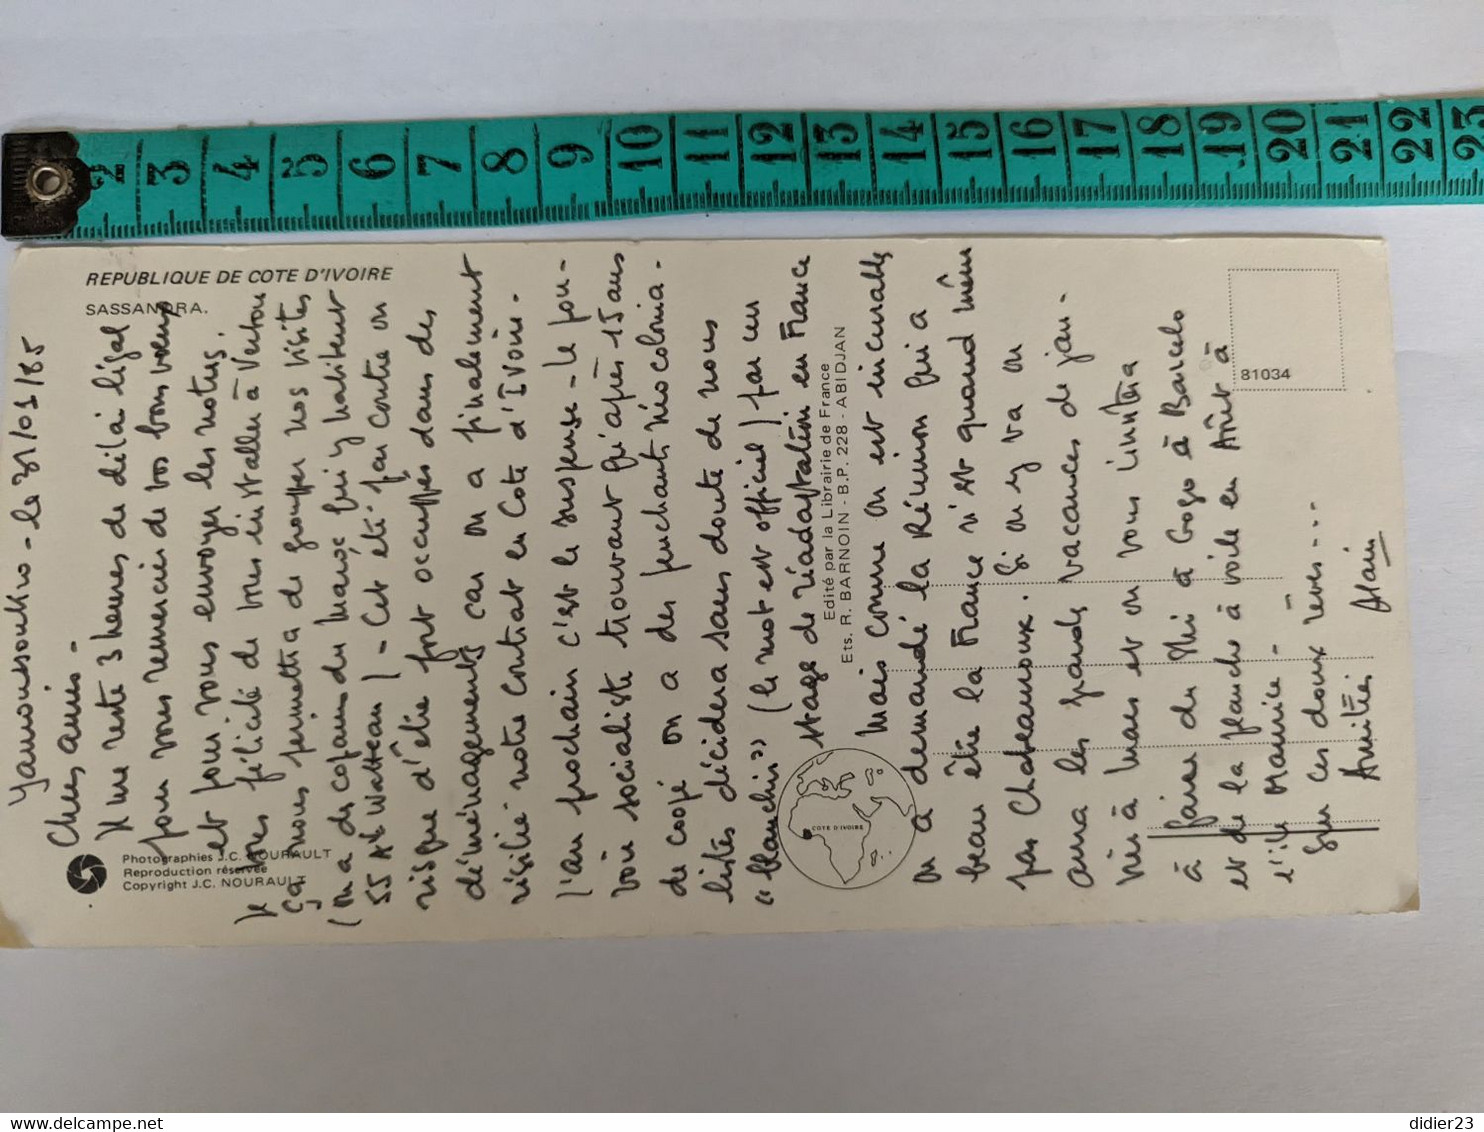 2 3 4 5 6 7 8 9 10 11 12 13 14 15 16 17 18 19 20 21 22 23
REPUBLIQUE DE COTE D'IVOIRE
SASSANDRA.
Photographies J.C. NOURAULT
Reproduction réservée
Copyright J.C. NOURAULT
Yamoussoukro - le 31/01/85
Chers amis -
Il me reste 3 heures de délai légal
pour vous remercier de vos bons voeux
et pour vous envoyer les notres.
Je vous félicite de vous installer à Vertou
ça nous permettra de grouper nos visites
(on a des copains du Maroc qui y habitent
55 Av Watteau) - Cet été par contre on
risque d'être fort occupés dans des
déménagements car on a finalement
résilié notre contrat en Cote d'Ivoire.
l'an prochain c'est le suspense - le pou-
voir socialiste trouvant qu'après 15 ans
de coopé on a des penchants néocolonia-
listes décidera sans doute de nous
"blanchir" (le mot est officiel) par un
stage de réadaptation en France
Mais comme on est incurables
on a demandé la Réunion qui a
beau être la France n'est quand même
pas Chateauroux. Si on y va on
aura les grandes vacances de jan-
vier à mars et on vous invitera
à faire du Ski à gogo à
et de la planche à voile en Août à
l'île Maurice -
Sur ces doux rêves...
Amitiés
Alain
Edité par la Librairie de France
Ets. R. BARNOIN - B.P. 228 - ABIDJAN
COTE D'IVOIRE
81034
didier23